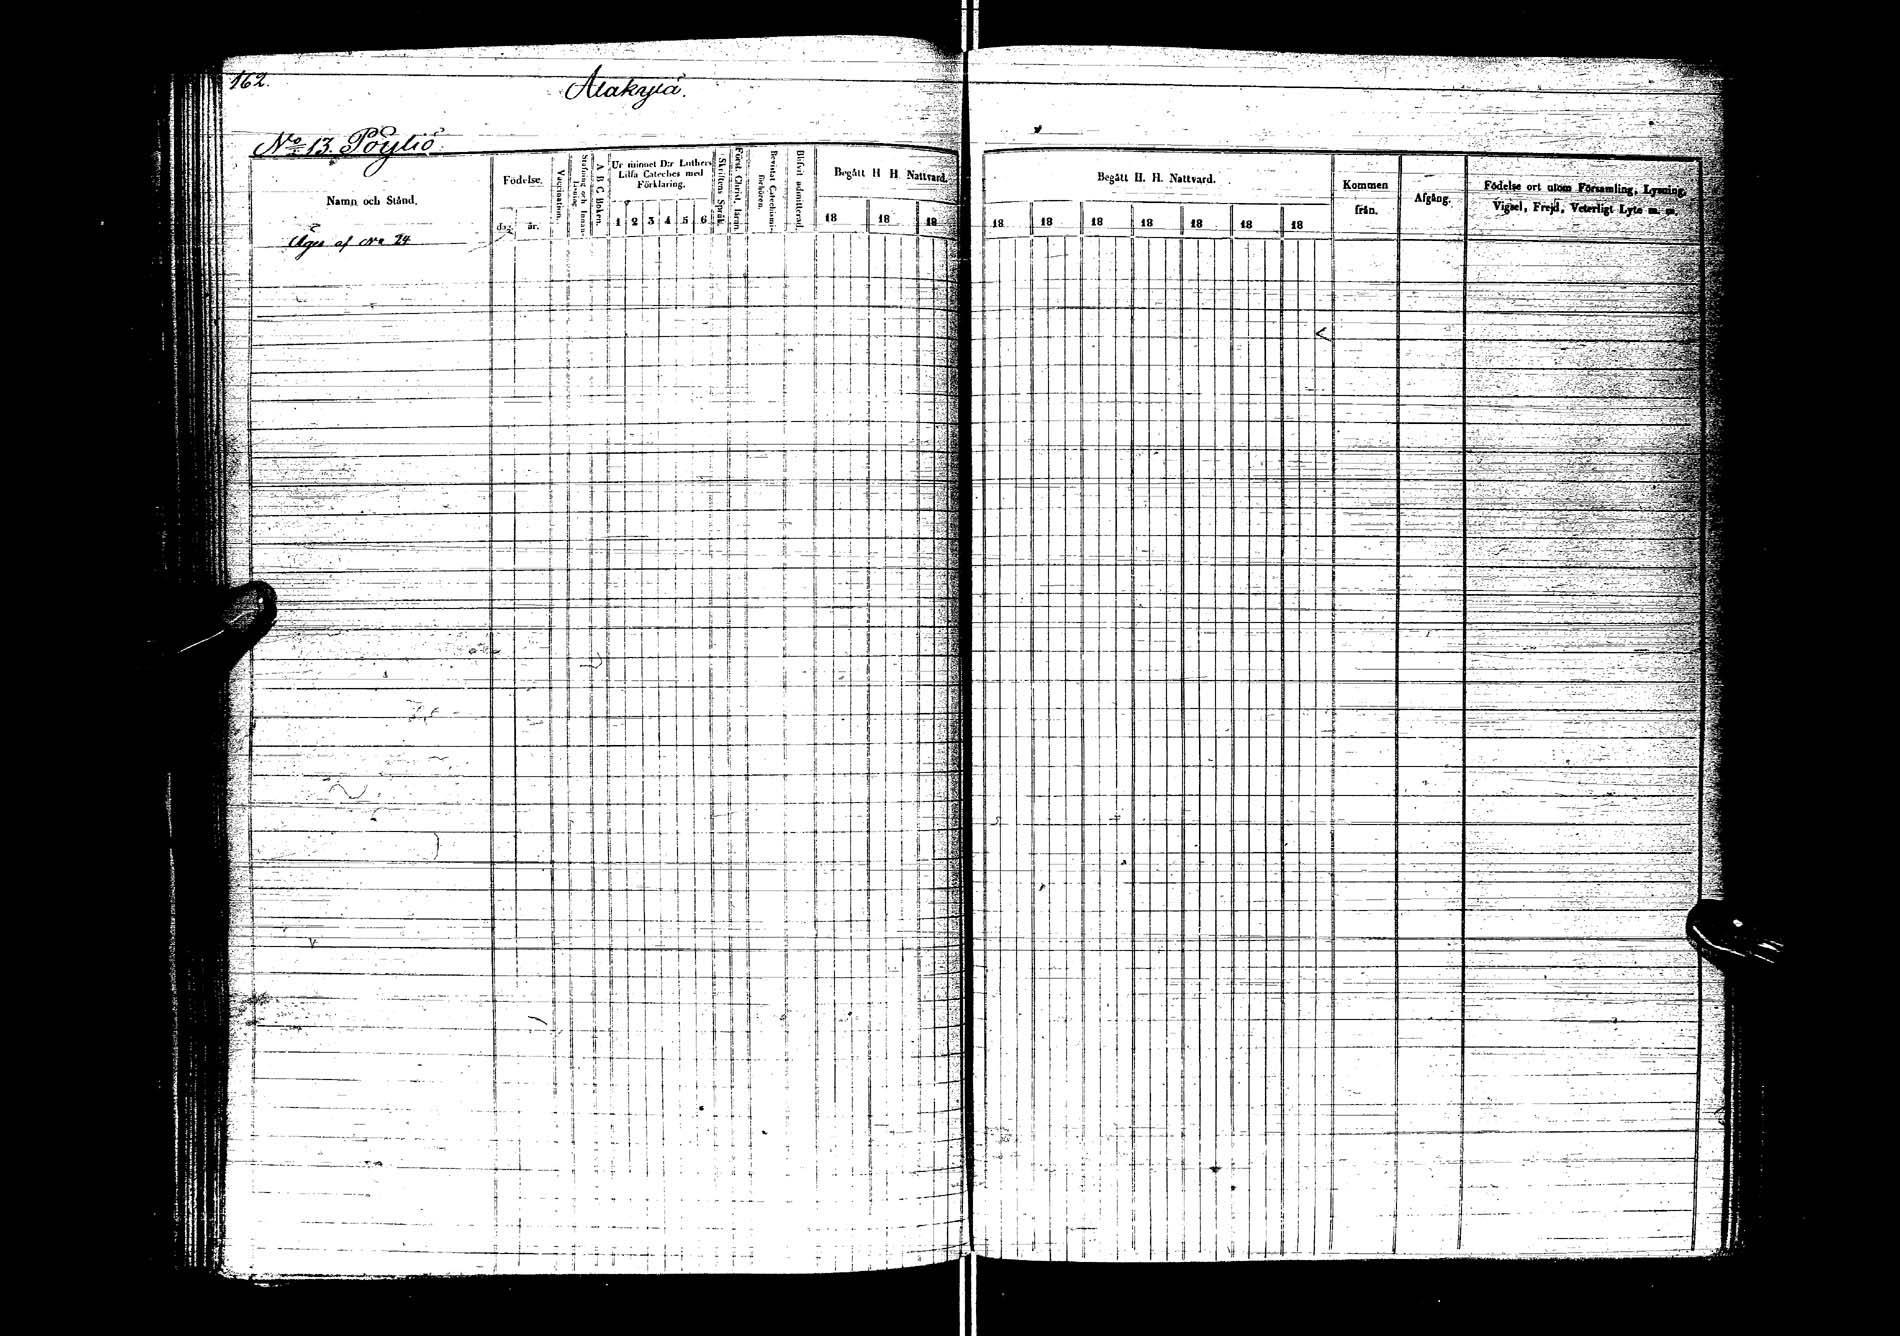 162.
Alakylä.
No 13. Pöyliö
Namn och Stånd.
Födelse.
dag.
år.
Vaccination.
Stafning och Innan-
Läsning.
A B C Boken.
Ur minnet D:r Luthers
Lilla Cateches med
Förklaring.
1 2 3 4 5 6
Skriftens Språk.
Först. Christ. lärin.
Bevistat Catechismi-
förhören.
Blifvit admitterad.
Begått H. H. Nattvard.
18 18 18
Äges af No 24
Begått H. H. Nattvard.
18 18 18 18 18 18 18
Kommen
från.
Afgång.
Födelse ort utom Församling, Lysning,
Vigsel, Frejd, Veterligt Lyte m. m.